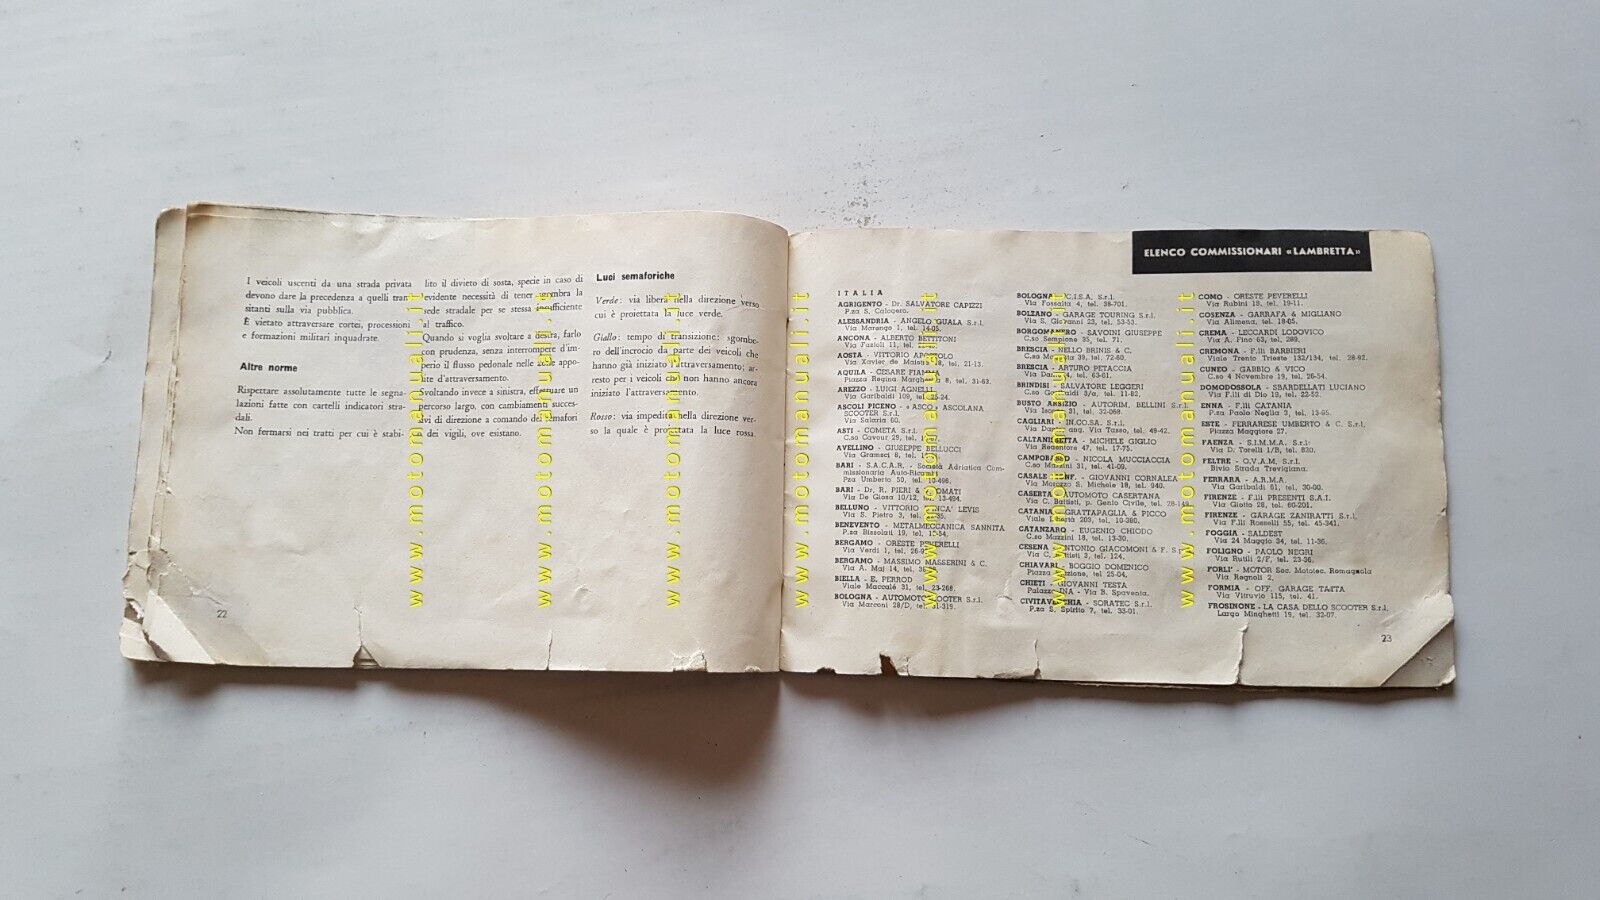 I veicoli uscenti da una strada privata
devono dare la precedenza a quelli tran
sitanti sulla via pubblica.
È vietato attraversare cortei, processioni
e formazioni militari inquadrate.
Altre norme
Rispettare assolutamente tutte le segna-
lazioni fatte con cartelli indicatori stra-
dali.
Non fermarsi nei tratti per cui è stabi-
lito il divieto di sosta, specie in caso di
evidente necessità di tener sgombra la
sede stradale per se stessa insufficiente
al traffico.
Quando si voglia svoltare a destra, farlo
con prudenza, senza interrompere d'im-
perio il flusso pedonale nelle zone appo-
site d'attraversamento.
Svoltando invece a sinistra, effettuare un
percorso largo, con cambiamenti succes-
sivi di direzione a comando dei semafori
o dei vigili, ove esistano.
Luci semaforiche
Verde: via libera nella direzione verso
cui è proiettata la luce verde.
Giallo: tempo di transizione: sgombe-
ro dell'incrocio da parte dei veicoli che
hanno già iniziato l'attraversamento; ar-
resto per i veicoli che non hanno ancora
iniziato l'attraversamento.
Rosso: via impedita nella direzione ver-
so la quale è proiettata la luce rossa.
22
ELENCO COMMISSIONARI «LAMBRETTA»
ITALIA
AGRIGENTO - Dr. SALVATORE CAPIZZI
P.za S. Calogero.
ALESSANDRIA - ANGELO GUALA S.r.l.
Via Marengo 1, tel. 14-05.
ANCONA - ALBERTO BETTITONI
Via Fazioli 11, tel.
AOSTA - VITTORIO APOSTOLO
Via Xavier de Maistre 18, tel. 21-13.
AQUILA - CESARE FIAMMA
Piazza Regina Margherita 8, tel. 31-63.
AREZZO - LUIGI AGNELLI
Via Garibaldi 109, tel. 25-24.
ASCOLI PICENO - «ASCO» ASCOLANA
SCOOTER S.r.l.
Via Salaria 60.
ASTI - COMETA S.r.l.
C.so Cavour 29, tel.
AVELLINO - GIUSEPPE BELLUCCI
Via Gramsci 8, tel.
BARI - S.A.C.A.R. - Società Adriatica Com-
missionaria Auto-Ricambi
P.za Umberto 50, tel. 10-496.
BARI - Dr. R. PIERI & DOMATI
Via De Giosa 10/12, tel. 13-494.
BELLUNO - VITTORIO VINCA' LEVIS
Via S. Pietro 3, tel.
BENEVENTO - METALMECCANICA SANNITA
P.za Bissolati 19, tel.
BERGAMO - ORESTE PEVERELLI
Via Verdi 1, tel.
BERGAMO - MASSIMO MASSERINI & C.
Via A. Maj 14, tel.
BIELLA - E. PERROD
Viale Maccalé 31, tel. 23-268.
BOLOGNA - AUTOMOTOSCOOTER S.r.l.
Via Marconi 28/D, tel. 31-319.
BOLOGNA - C.I.S.A. S.r.l.
Via Fossalta 4, tel. 38-701.
BOLZANO - GARAGE TOURING S.r.l.
Via S. Giovanni 23, tel. 53-53.
BORGOMANERO - SAVOINI GIUSEPPE
C.so Sempione 35, tel. 71.
BRESCIA - NELLO BRINIS & C.
C.so Magenta 39, tel. 72-80.
BRESCIA - ARTURO PETACCIA
Via Dante 4, tel. 63-61.
BRINDISI - SALVATORE LEGGERI
C.so Garibaldi 3/a, tel. 11-82.
BUSTO ARSIZIO - AUTORIM. BELLINI S.r.l.
Via Isonzo 31, tel. 32-068.
CAGLIARI - IN.CO.SA. S.r.l.
Via Dante ang. Via Tasso, tel. 49-42.
CALTANISSETTA - MICHELE GIGLIO
Via Redentore 47, tel. 17-75.
CAMPOBASSO - NICOLA MUCCIACCIA
C.so Mazzini 31, tel. 41-09.
CASALE MONF. - GIOVANNI CORNALEA
Via Morozzo S. Michele 18, tel. 940.
CASERTA - AUTOMOTO CASERTANA
Via C. Battisti, p. Genio Civile, tel. 28-149.
CATANIA - GRATTAPAGLIA & PICCO
Viale Libertà 203, tel. 10-380.
CATANZARO - EUGENIO CHIODO
C.so Mazzini 18, tel. 13-30.
CESENA - ANTONIO GIACOMONI & F. S.r.l.
Via C. Battisti 3, tel. 124.
CHIAVARI - BOGGIO DOMENICO
Piazza Stazione, tel 25-04.
CHIETI - GIOVANNI TESTA
Palazzo INA - Via B. Spaventa.
CIVITAVECCHIA - SORATEC S.r.l.
P.za S. Spirito 7, tel. 33-01.
COMO - ORESTE PEVERELLI
Via Rubini 18, tel. 19-11.
COSENZA - GARRAFA & MIGLIANO
Via Alimena, tel. 18-05.
CREMA - LECCARDI LODOVICO
Via A. Fino 63, tel. 289.
CREMONA - F.lli BARBIERI
Viale Trento Trieste 132/134, tel. 28-92.
CUNEO - GABBIO & VICO
C.so 4 Novembre 19, tel. 26-54.
DOMODOSSOLA - SBARDELLATI LUCIANO
Via F.lli di Dio 19, tel. 22-52.
ENNA - F.lli CATANIA
P.za Paolo Neglia 3, tel. 13-95.
ESTE - FERRARESE UMBERTO & C. S.r.l.
Piazza Maggiore 27.
FAENZA - S.I.M.M.A. S.r.l.
Via D. Torelli 1/B, tel. 820.
FELTRE - O.V.A.M. S.r.l.
Bivio Strada Trevigiana.
FERRARA - A.R.M.A.
Via Garibaldi 61, tel. 30-00.
FIRENZE - F.lli PRESENTI S.A.I.
Via Giotto 28, tel. 60-201.
FIRENZE - GARAGE ZANIRATTI S.r.l.
Via F.lli Rosselli 55, tel. 45-341.
FOGGIA - SALDEST
Via 24 Maggio 34, tel. 11-36.
FOLIGNO - PAOLO NEGRI
Via Rutili 2/F, tel. 23-36.
FORLI' - MOTOR Soc. Mototec. Romagnola
Via Regnoli 2.
FORMIA - OFF. GARAGE TAITTA
Via Vitruvio 115, tel. 41.
FROSINONE - LA CASA DELLO SCOOTER S.r.l.
Largo Minghetti 19, tel. 32-07.
23
www.motomanuali.it
www.motomanuali.it
www.motomanuali.it
www.motomanuali.it
www.motomanuali.it
www.motomanuali.it
www.motomanuali.it